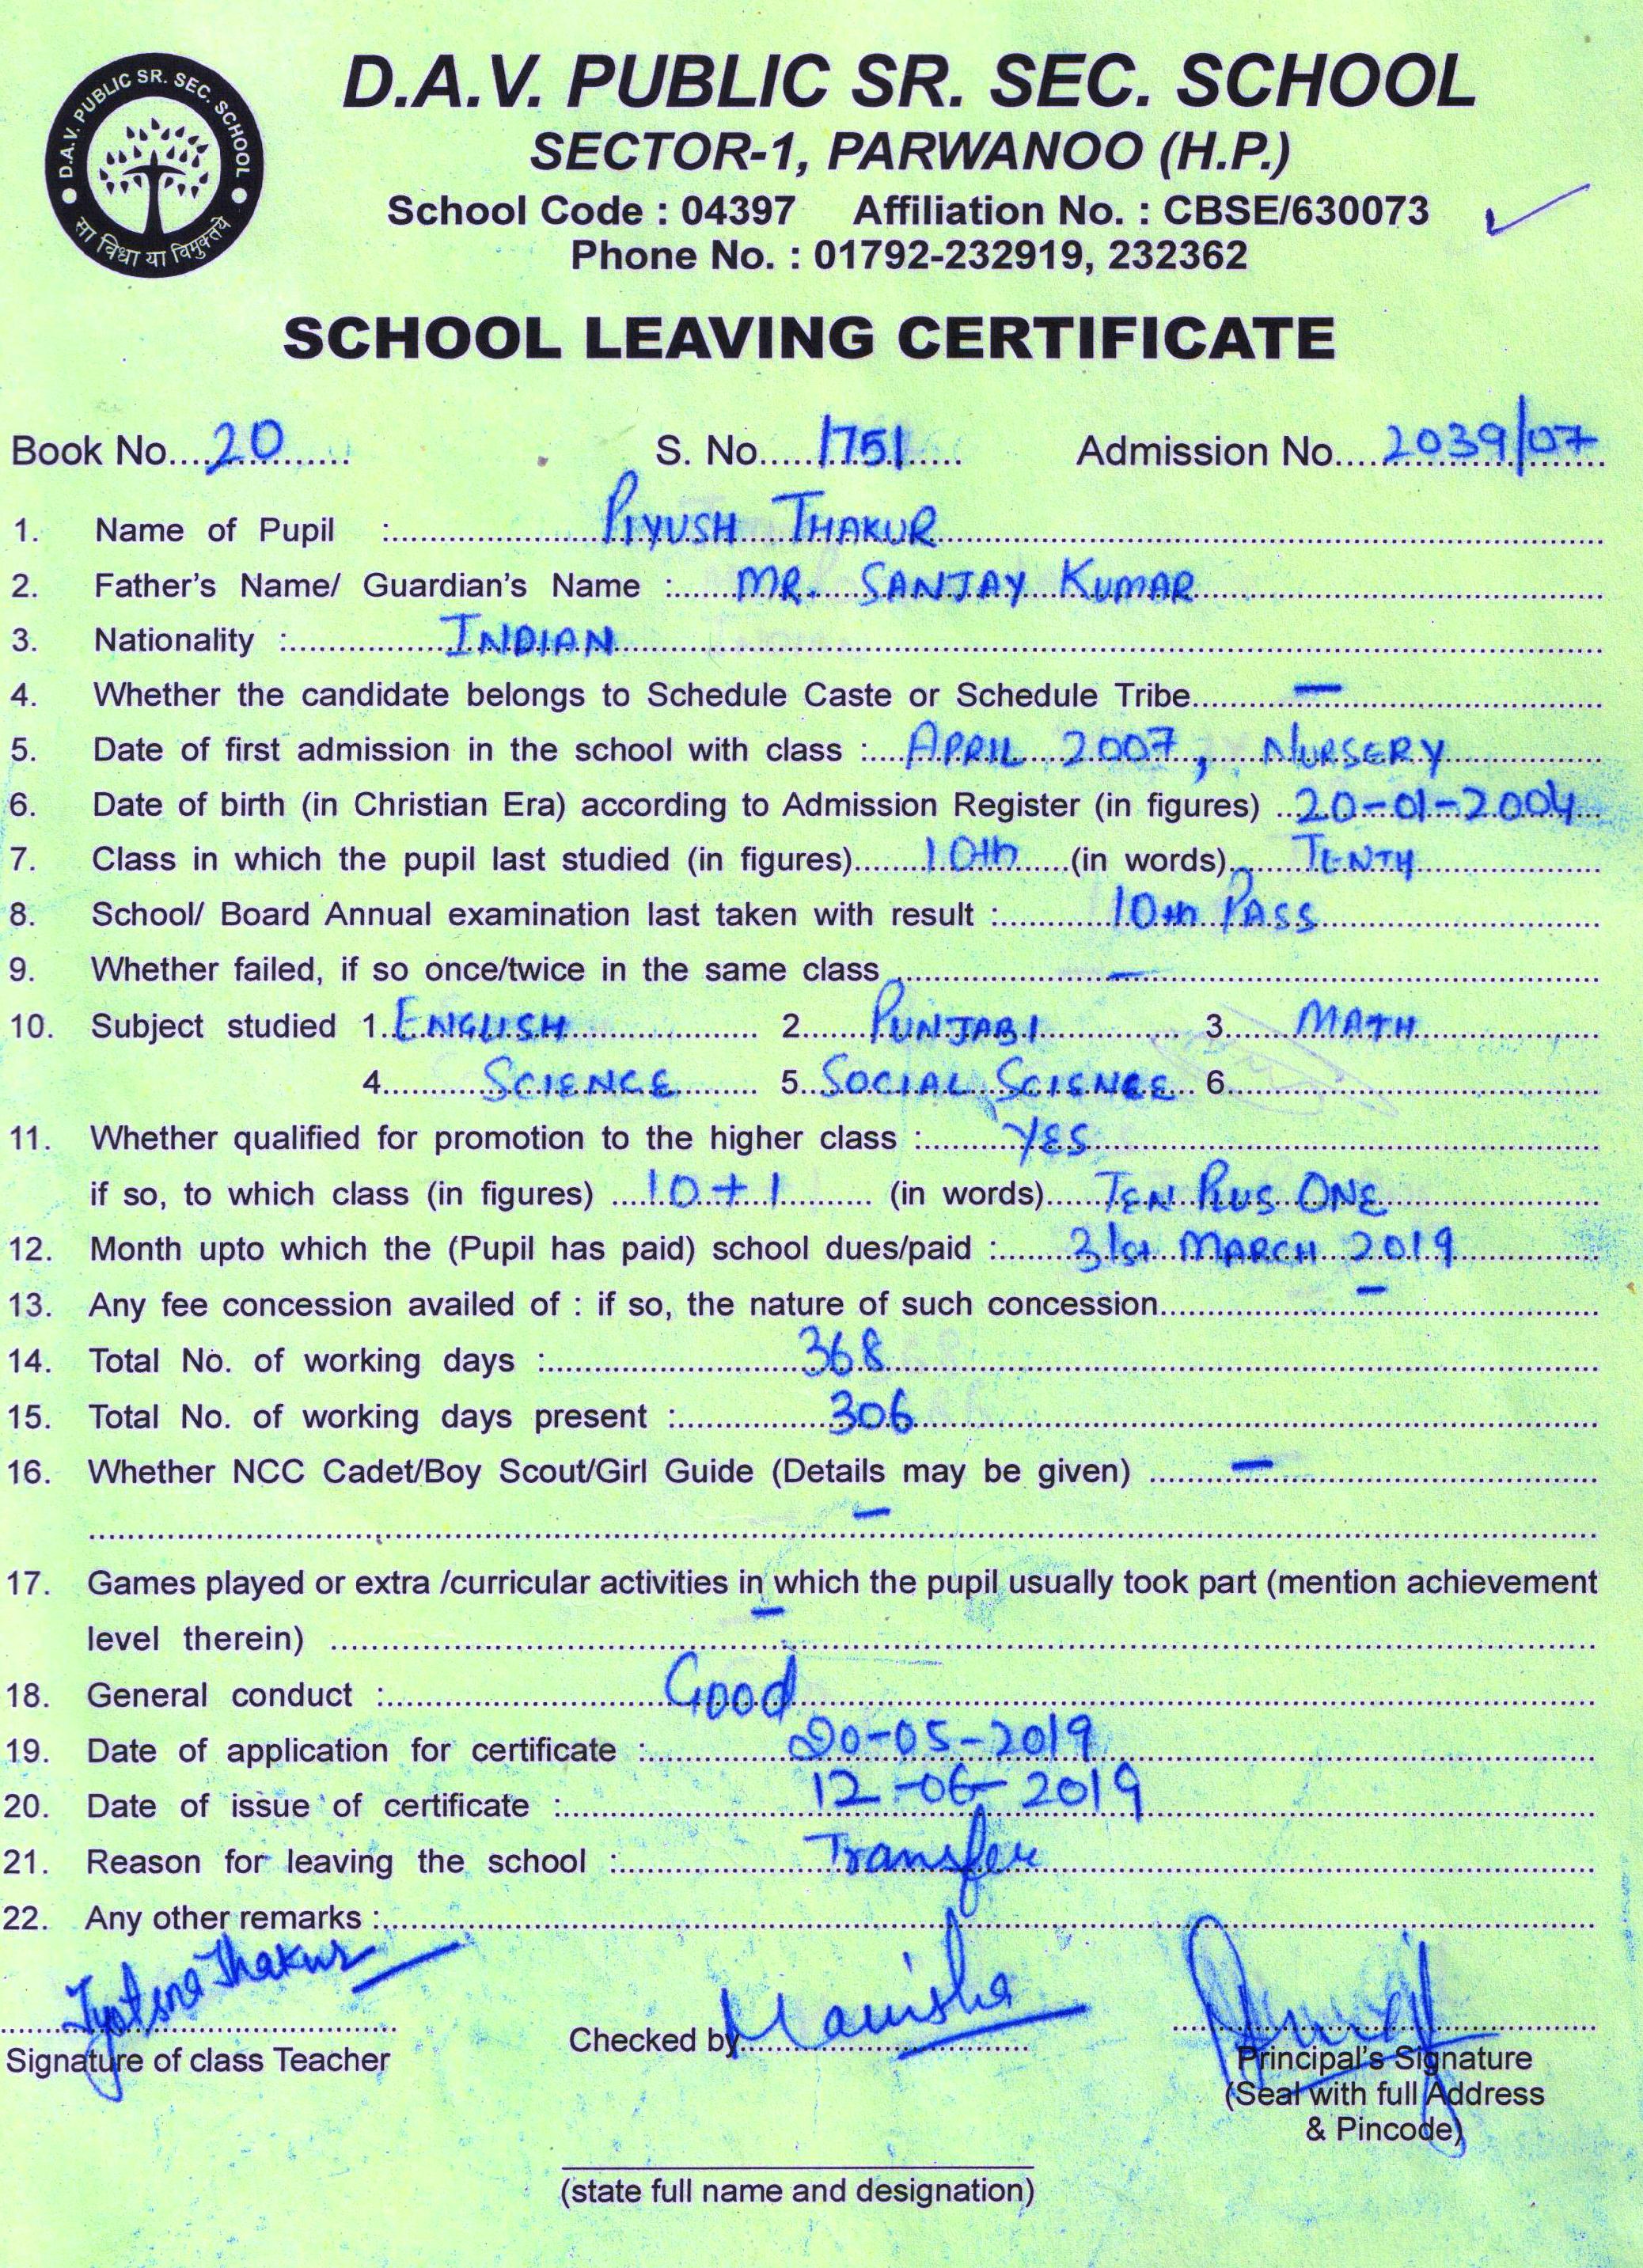 D.A.V. PUBLIC SR. SEC. SCHOOL
सा विद्या या विमुक्तये
D.A.V. PUBLIC SR. SEC. SCHOOL
SECTOR-1, PARWANOO (H.P.)
School Code : 04397 Affiliation No. : CBSE/630073
Phone No. : 01792-232919, 232362
SCHOOL LEAVING CERTIFICATE
Book No....20.... S. No....1751.... Admission No....2039/07
1. Name of Pupil :....PIYUSH THAKUR....
2. Father's Name/ Guardian's Name :....MR. SANJAY KUMAR....
3. Nationality :....INDIAN....
4. Whether the candidate belongs to Schedule Caste or Schedule Tribe....—....
5. Date of first admission in the school with class :....APRIL 2007, NURSERY....
6. Date of birth (in Christian Era) according to Admission Register (in figures) ..20-01-2004..
7. Class in which the pupil last studied (in figures)....10th....(in words)....TENTH....
8. School/ Board Annual examination last taken with result :....10th PASS....
9. Whether failed, if so once/twice in the same class ....—....
10. Subject studied 1..ENGLISH.... 2....PUNJABI.... 3....MATH....
4....SCIENCE.... 5..SOCIAL SCIENCE.. 6....
11. Whether qualified for promotion to the higher class :....YES....
if so, to which class (in figures) ....10+1.... (in words)....TEN PLUS ONE....
12. Month upto which the (Pupil has paid) school dues/paid :....31st MARCH 2019....
13. Any fee concession availed of : if so, the nature of such concession....—....
14. Total No. of working days :....368....
15. Total No. of working days present :....306....
16. Whether NCC Cadet/Boy Scout/Girl Guide (Details may be given) ....—....
....—....
17. Games played or extra /curricular activities in which the pupil usually took part (mention achievement
level therein) ....—....
18. General conduct :....Good....
19. Date of application for certificate :....20-05-2019....
20. Date of issue of certificate :....12-06-2019....
21. Reason for leaving the school :....Transfer....
22. Any other remarks :....
Jyotsna Thakur
Signature of class Teacher
Checked by....Manisha....
Principal's Signature
(Seal with full Address
& Pincode)
(state full name and designation)